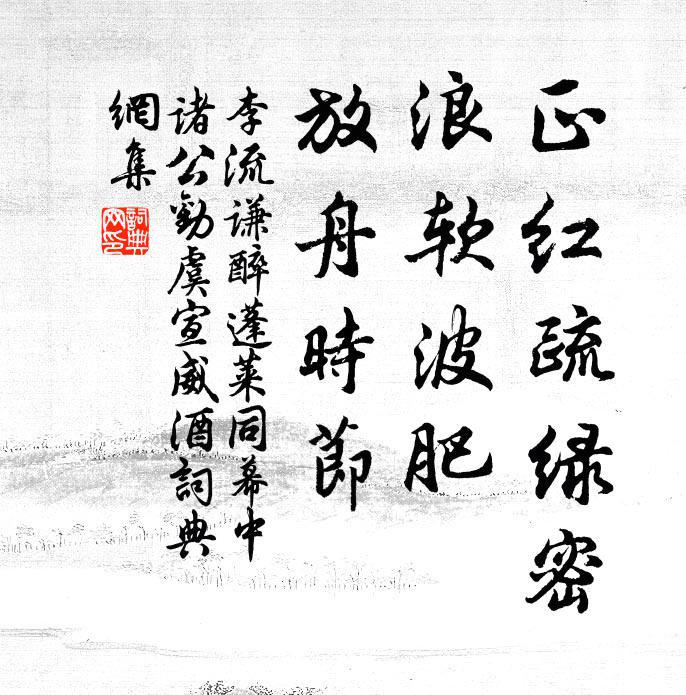 正紅疏緑密
浪軟波肥
放舟時節
李流謙醉蓬萊同幕中
諸公勸虞宣威酒詞典
網集
詞典網印